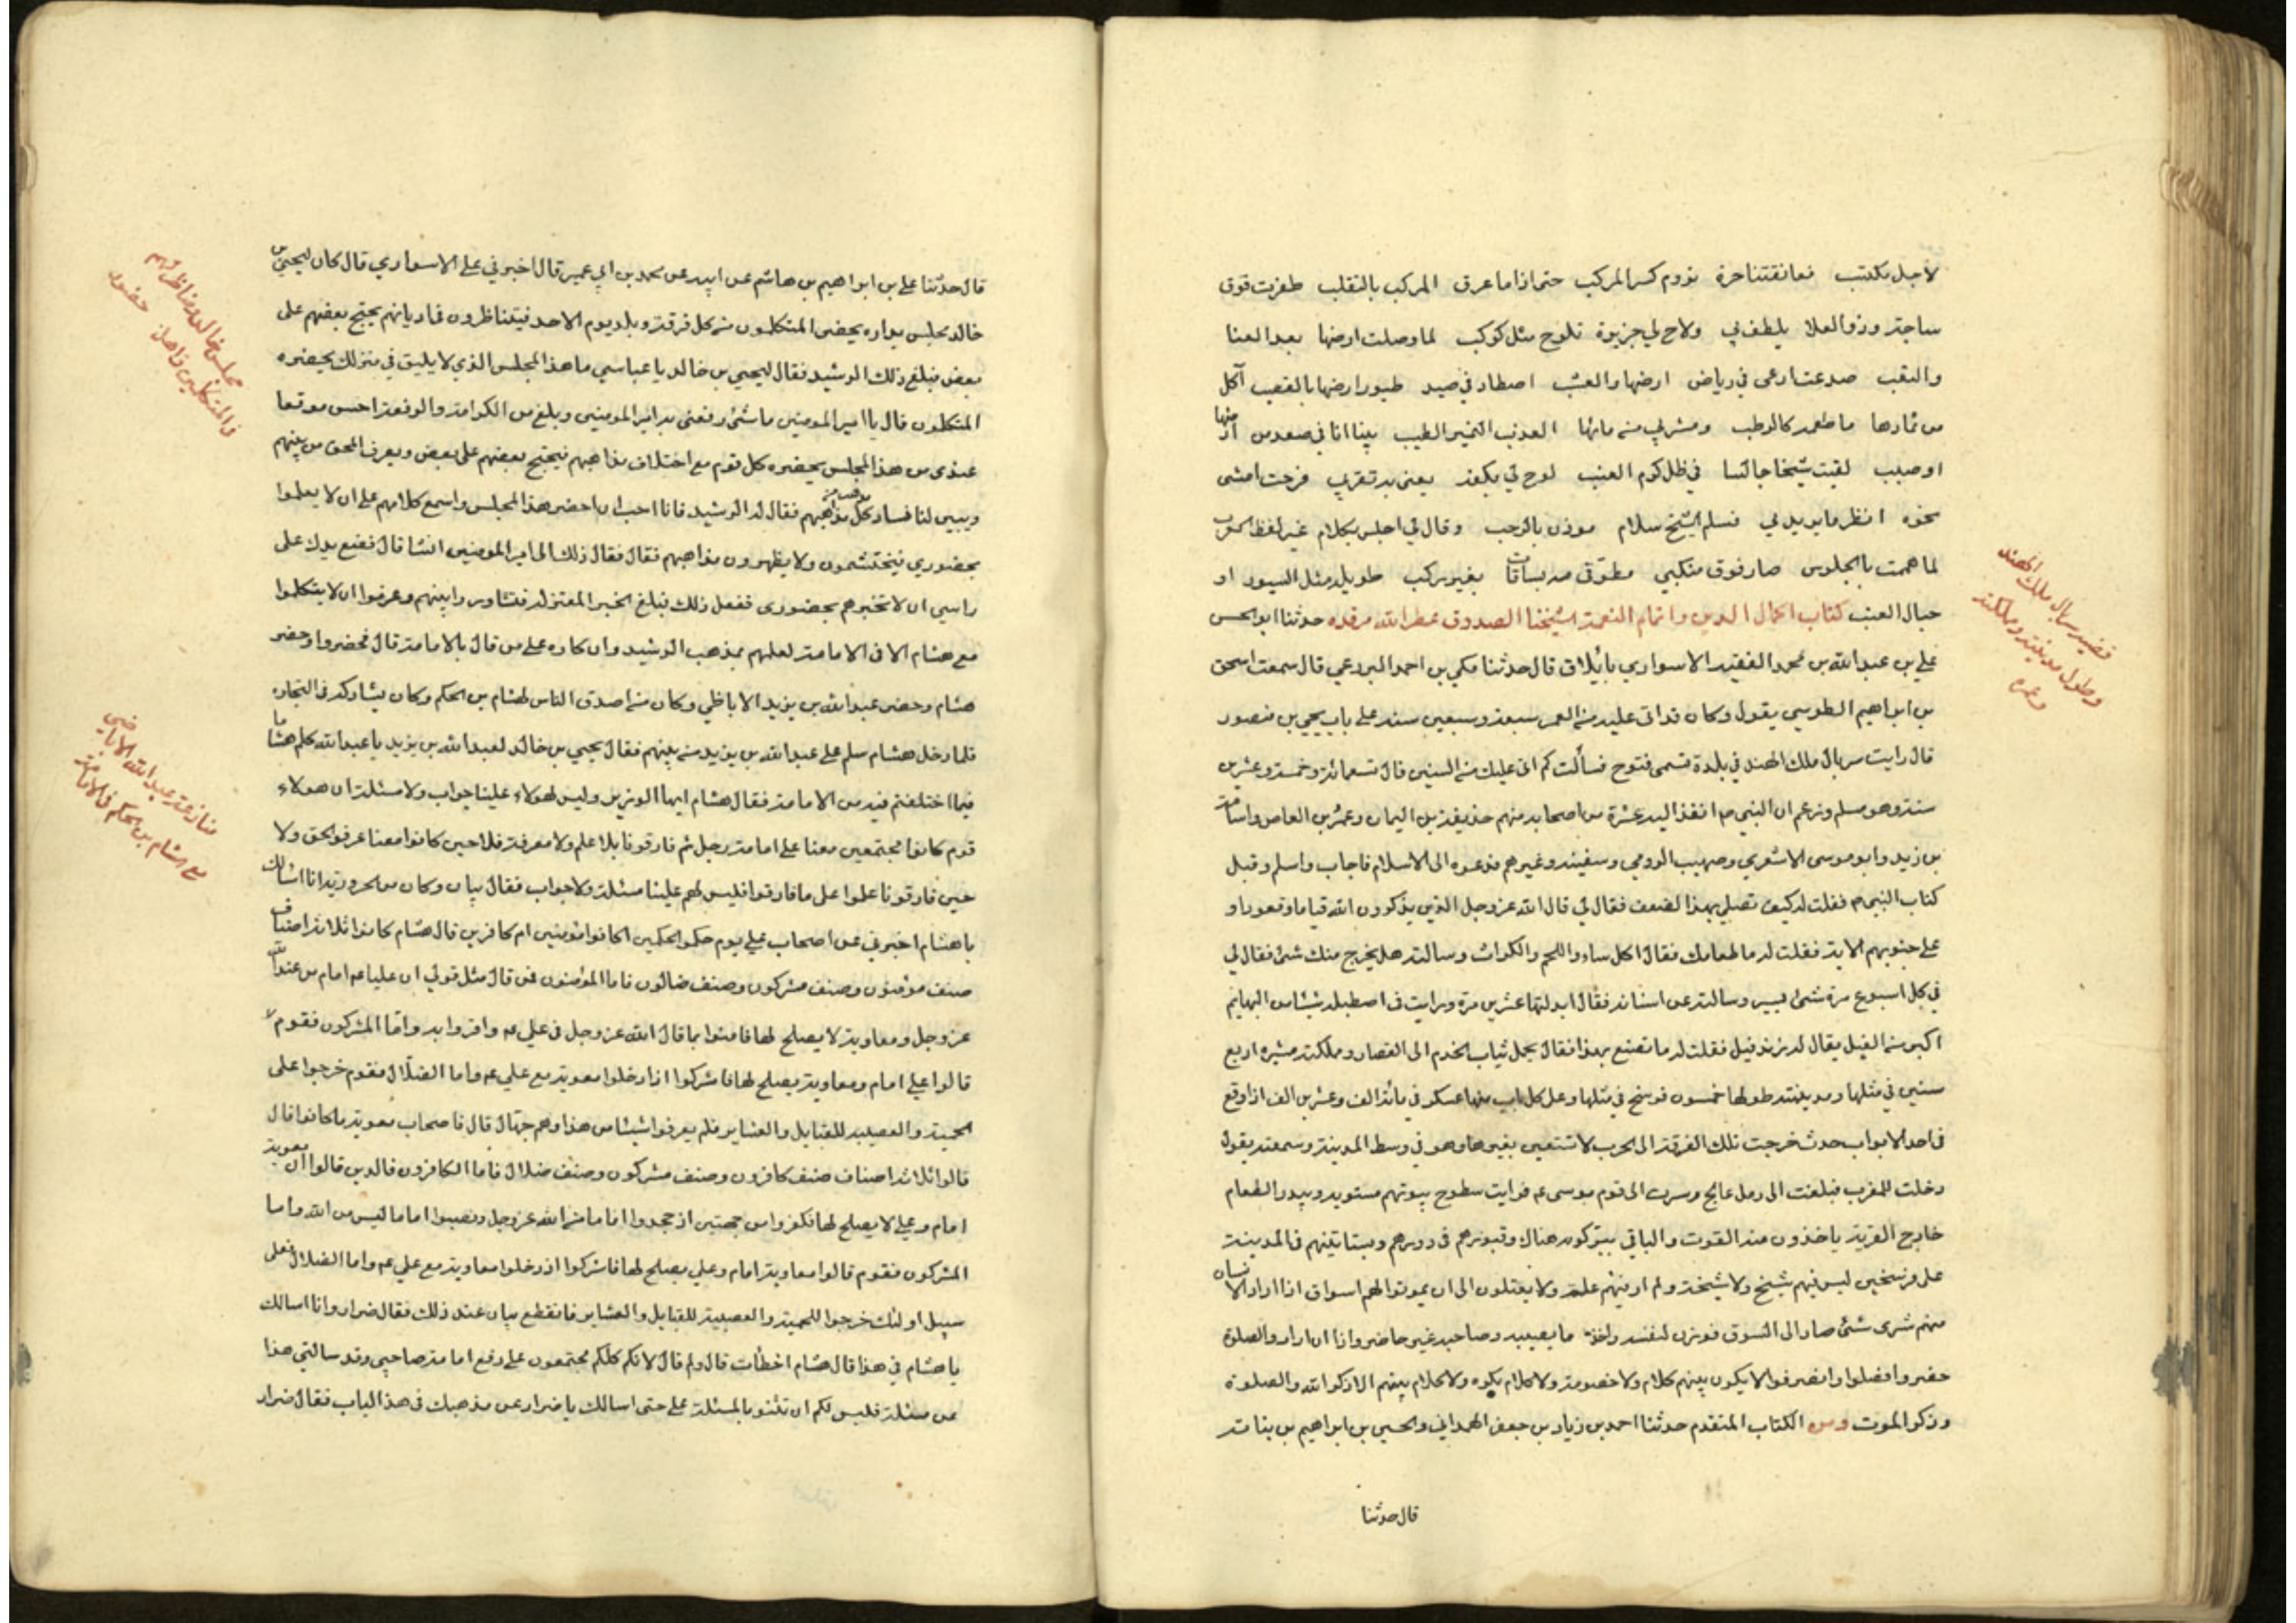 لاجل مكتب فعانقتنا حرة نروم كسر المركب حتى اذا ما غرق المركب بالتقلب طفرت فوق
ساجة وذو العلا يلطف بي ولاح لي جزيرة تلوح مثل كوكب لما وصلت ارضها بعد العنا
والنقب صدعت ارعى في رياض ارضها والعشب اصطاد في صيد طيور ارضها بالقصب آكل
من ثمارها ما طعمه كالرطب ومشربي من مائها العذب النمير الطيب بينا انا في صعد من ارضها
او صبب لقيت شيخا جالسا في ظل كرم العنب لوح لي بكفه يعني به تقرب فرحت امشي
نحوه انظر ما يريد لي فسلم الشيخ سلام موذن بالرحب وقال لي اجلس بكلام غير لفظ العرب
لما هممت بالجلوس صار فوق منكبي مطوقي بساقات بغير ركب طويلة مثل السيور او
حبال العنب كتاب اكمال الدين واتمام النعمة لشيخنا الصدوق عطر الله مرقده حدثنا ابو الحسن
علي بن عبد الله بن محمد الفقيه الاسواري بايلاق قال حدثنا مكي بن احمد البردعي قال سمعت اسحق
بن ابراهيم الطوسي يقول وكان قد اتى عليه من العمر سبعة وسبعين سنة على باب يحيى بن منصور
قال رايت سربال ملك الهند في بلدة تسمى قنوج فسألت كم اتى عليك من السنين قال تسعمائة وخمسة وعشرين
سنة وهو مسلم وزعم ان النبي ص انفذ اليه عشرة من اصحابه منهم حذيفة بن اليمان وعمرو بن العاص واسامة
بن زيد وابو موسى الاشعري وصهيب الرومي وسفينة وغيرهم فدعوه الى الاسلام فاجاب واسلم وقبل
كتاب النبي ص فقلت له كيف تصلي بهذا الضعف فقال لي قال الله عز وجل الذين يذكرون الله قياما وقعودا و
على جنوبهم الاية فقلت له ما طعامك فقال اكل ماء واللحم والكراث وسالته هل يخرج منك شئ فقال لي
في كل اسبوع مرة شئ يسير وسالته عن اسنانه فقال ابدلتها عشرين مرة ورايت في اصطبله شيئا من البهائم
اكبر من الفيل يقال له زند فيل فقلت له ما تصنع بهذا فقال يحمل ثياب الخدم الى القصار ومملكته مسيره اربع
سنين في مثلها ومدينته طولها خمسون فرسخ في مثلها وعلى كل باب منها عسكر في مائة الف وعشرين الف اذا وقع
في احد الابواب حدث خرجت تلك الفرقة الى الحرب لا تستعين بغيرها وهو في وسط المدينة وسمعته يقول
دخلت المغرب فبلغت الى رمل عالج وسرت الى قوم موسى ع م فرايت سطوح بيوتهم مستوية وبيدر الطعام
خارج القرية ياخذون منه القوت والباقي يتركونه هناك وقبورهم في دورهم وبساتينهم في المدينة
على فرسخين ليس فيهم شيخ ولا شيخة ولم ار فيهم علة ولا يعتلون الى ان يموتوا لهم اسواق اذا اراد الانسان
منهم شرى شئ صار الى السوق فوزن لنفسه واخذ ما يصيبه وصاحبه غير حاضر واذا ارادوا الصلوة
حضروا فصلوا وانصرفوا لا يكون بينهم كلام ولا خصومة ولا كلام يكره ولا كلام بينهم الا ذكر الله والصلوة
وذكر الموت ومن الكتاب المتقدم حدثنا احمد بن زياد بن جعفر الهمداني والحسين بن ابراهيم بن بناتة
قال حدثنا
قضية سربال ملك الهند
وطول مدينته ومملكته
وعمره
قال حدثنا علي بن ابراهيم بن هاشم عن ابيه عن محمد بن ابي عمير قال اخبرني علي الاسواري قال كان ليحيى بن
خالد مجلس بداره يحضره المتكلمون من كل فرقة وملة يوم الاحد فيتناظرون في اديانهم يحتج بعضهم على
بعض فبلغ ذلك الرشيد فقال ليحيى بن خالد يا عباسي ما هذا المجلس الذي لا يليق في منزلك يحضره
المتكلمون قال يا امير المومنين ما شئ رفعني به امير المومنين وبلغ من الكرامة والرفعة احسن موقعا
عندي من هذا المجلس يحضره كل قوم مع اختلاف مذاهبهم فيحتج بعضهم على بعض ويعرف المحق من بينهم
ويبين لنا فساد كل مذاهبهم فقال له الرشيد فانا احب ان احضر هذا المجلس واسمع كلامهم على ان لا يعلموا
بحضوري فيحتشمون ولا يظهرون مذاهبهم فقال فقال ذلك الى امير المومنين انشا قال فضع يدك على
راسي ان لا تخبرهم بحضوري ففعل ذلك فبلغ الخبر المعتزلة فتشاوروا بينهم وعرفوا ان لا يتكلموا
مع هشام الا في الامامة لعلمهم بمذهب الرشيد وانكاره على من قال بالامامة قال فحضروا وحضر
هشام وحضر عبد الله بن يزيد الاباظي وكان من اصدق الناس لهشام بن الحكم وكان يشاركه في التجاره
فلما دخل هشام سلم على عبد الله بن يزيد من بينهم فقال يحيى بن خالد لعبد الله بن يزيد يا عبد الله كلم هشاما
فيما اختلفتم فيه من الامامة فقال هشام ايها الوزير وليس لهولاء علينا جواب ولا مسئلة ان هولاء
قوم كانوا مجتمعين معنا على امامة رجل ثم فارقونا بلا علم ولا معرفة فلا حين كانوا معنا عرفوا الحق ولا
حين فارقونا علموا على ما فارقوا فليس لهم علينا مسئلة ولا جواب فقال بيان وكان من الحرورية انا اسئالك
يا هشام اخبرني عن اصحاب علي يوم حكموا الحكمين اكانوا مؤمنين ام كافرين قال هشام كانوا ثلاثة اصناف
صنف مؤمنون وصنف مشركون وصنف ضالون فاما المؤمنون فمن قال مثل قولي ان عليا ع م امام من عند الله
عز وجل ومعاوية لا يصلح لها فامنوا بما قال الله عز وجل في علي ع م واقروا به واما المشركون فقوم
قالوا علي امام ومعاوية يصلح لها فاشركوا اذ ادخلوا معوية مع علي ع م واما الضلال فقوم خرجوا على
الحمية والعصبية للقبايل والعشاير فلم يعرفوا شيئا من هذا وهم جهال قال فاصحاب معوية ما كانوا قال
قالوا ثلاثة اصناف صنف كافرون وصنف مشركون وصنف ضلال فاما الكافرون فالذين قالوا ان معوية
امام وعلي لا يصلح لها فكفروا من جهتين اذ جحدوا اماما من الله عز وجل ونصبوا اماما ليس من الله واما
المشركون فقوم قالوا معاوية امام وعلي يصلح لها فاشركوا اذ دخلوا معاوية مع علي ع م واما الضلال فعلى
سبيل اولئك خرجوا للحمية والعصبية للقبايل والعشاير فانقطع بيان عند ذلك فقال ضرار وانا اسالك
يا هشام في هذا قال هشام اخطأت قال ولم قال لانكم كلكم مجتمعون على دفع امامة صاحبي وقد سالني هذا
عن مسئلة فليس لكم ان تثنوا بالمسئلة علي حتى اسالك يا ضرار عن مذهبك في هذا الباب فقال ضرار
مجلس خالد ومناظراتهم
والمتكلمين حضور
منازعة عبد الله الاباضي
مع هشام بن الحكم في الامامة